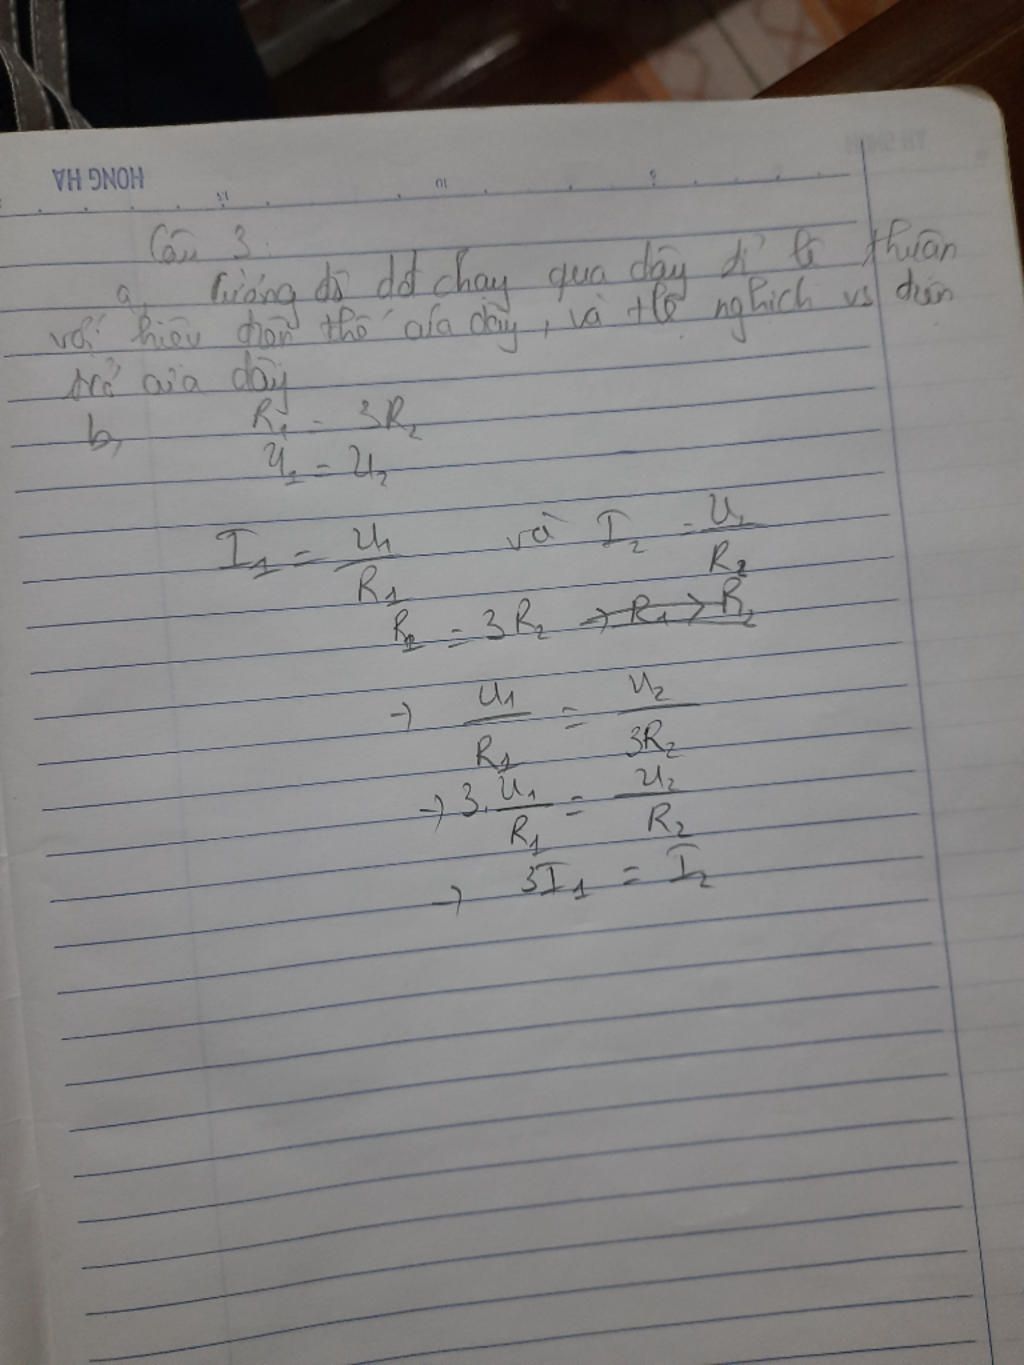 HONG HA
Câu 3:
a, Cường độ dđ chạy qua dây tỉ lệ thuận
với hiệu điện thế của dây, và tlệ nghịch vs điện
trở của dây
b, R1 = 3R2
U1 = U2
I1 = U1/R1 và I2 = U2/R2
R1 = 3R2 → R1 > R2
→ U1/R1 = U2/3R2
→ 3. U1/R1 = U2/R2
→ 3I1 = I2